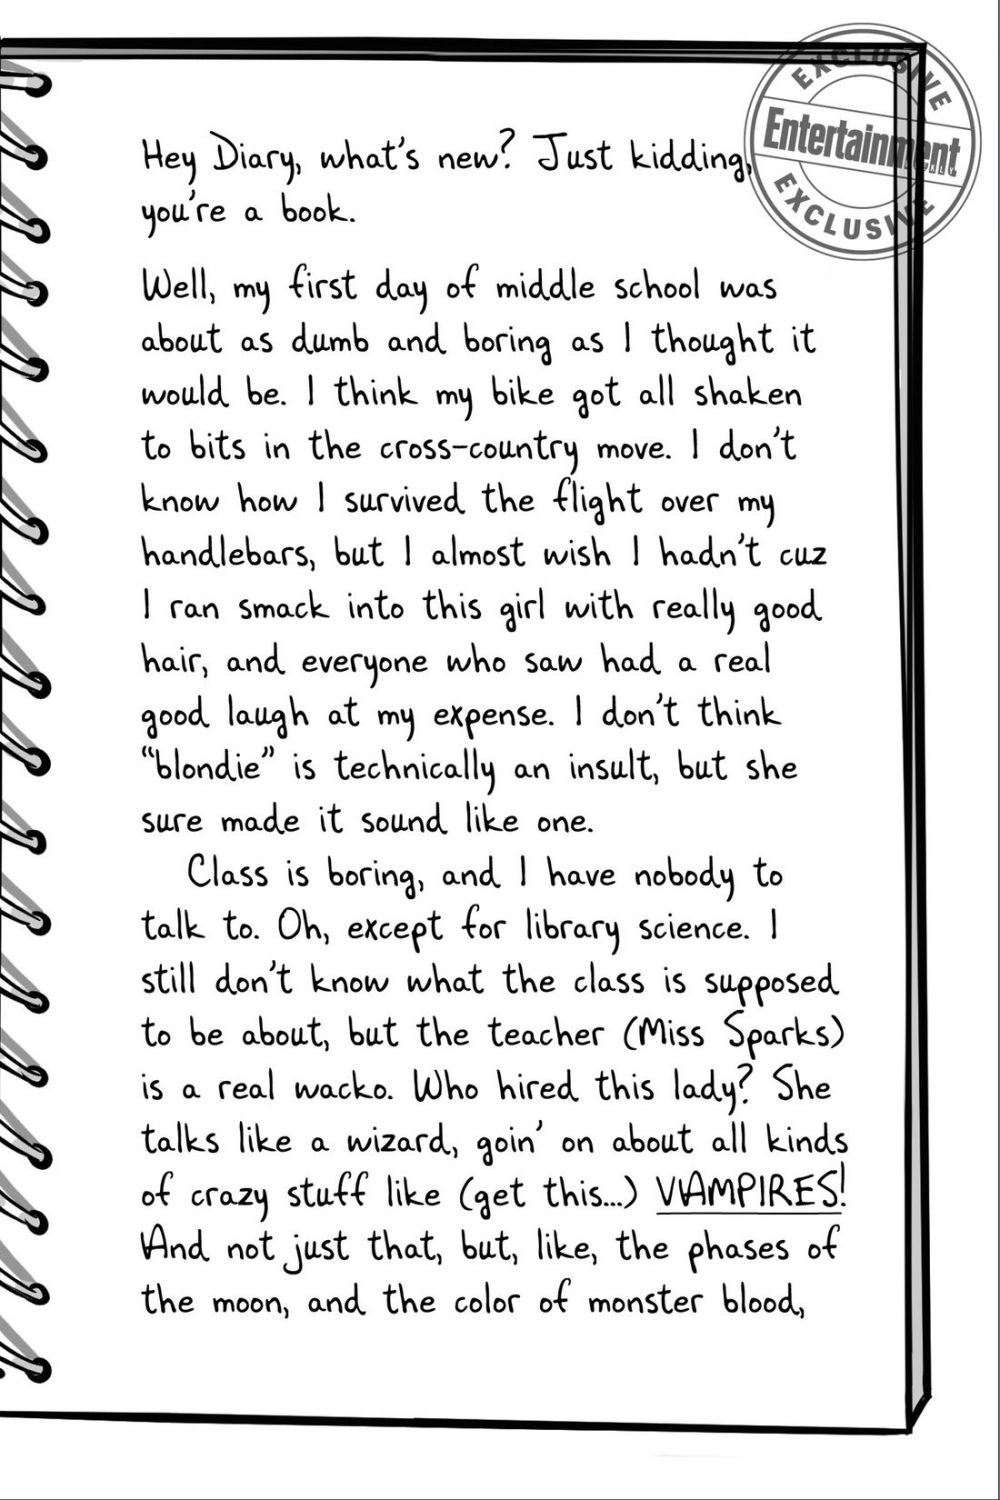 EXCLUSIVE
Entertainment
EXCLUSIVE
Hey Diary, what's new? Just kidding,
you're a book.
Well, my first day of middle school was
about as dumb and boring as I thought it
would be. I think my bike got all shaken
to bits in the cross-country move. I don't
know how I survived the flight over my
handlebars, but I almost wish I hadn't cuz
I ran smack into this girl with really good
hair, and everyone who saw had a real
good laugh at my expense. I don't think
"blondie" is technically an insult, but she
sure made it sound like one.
Class is boring, and I have nobody to
talk to. Oh, except for library science. I
still don't know what the class is supposed
to be about, but the teacher (Miss Sparks)
is a real wacko. Who hired this lady? She
talks like a wizard, goin' on about all kinds
of crazy stuff like (get this...) VAMPIRES!
And not just that, but, like, the phases of
the moon, and the color of monster blood,